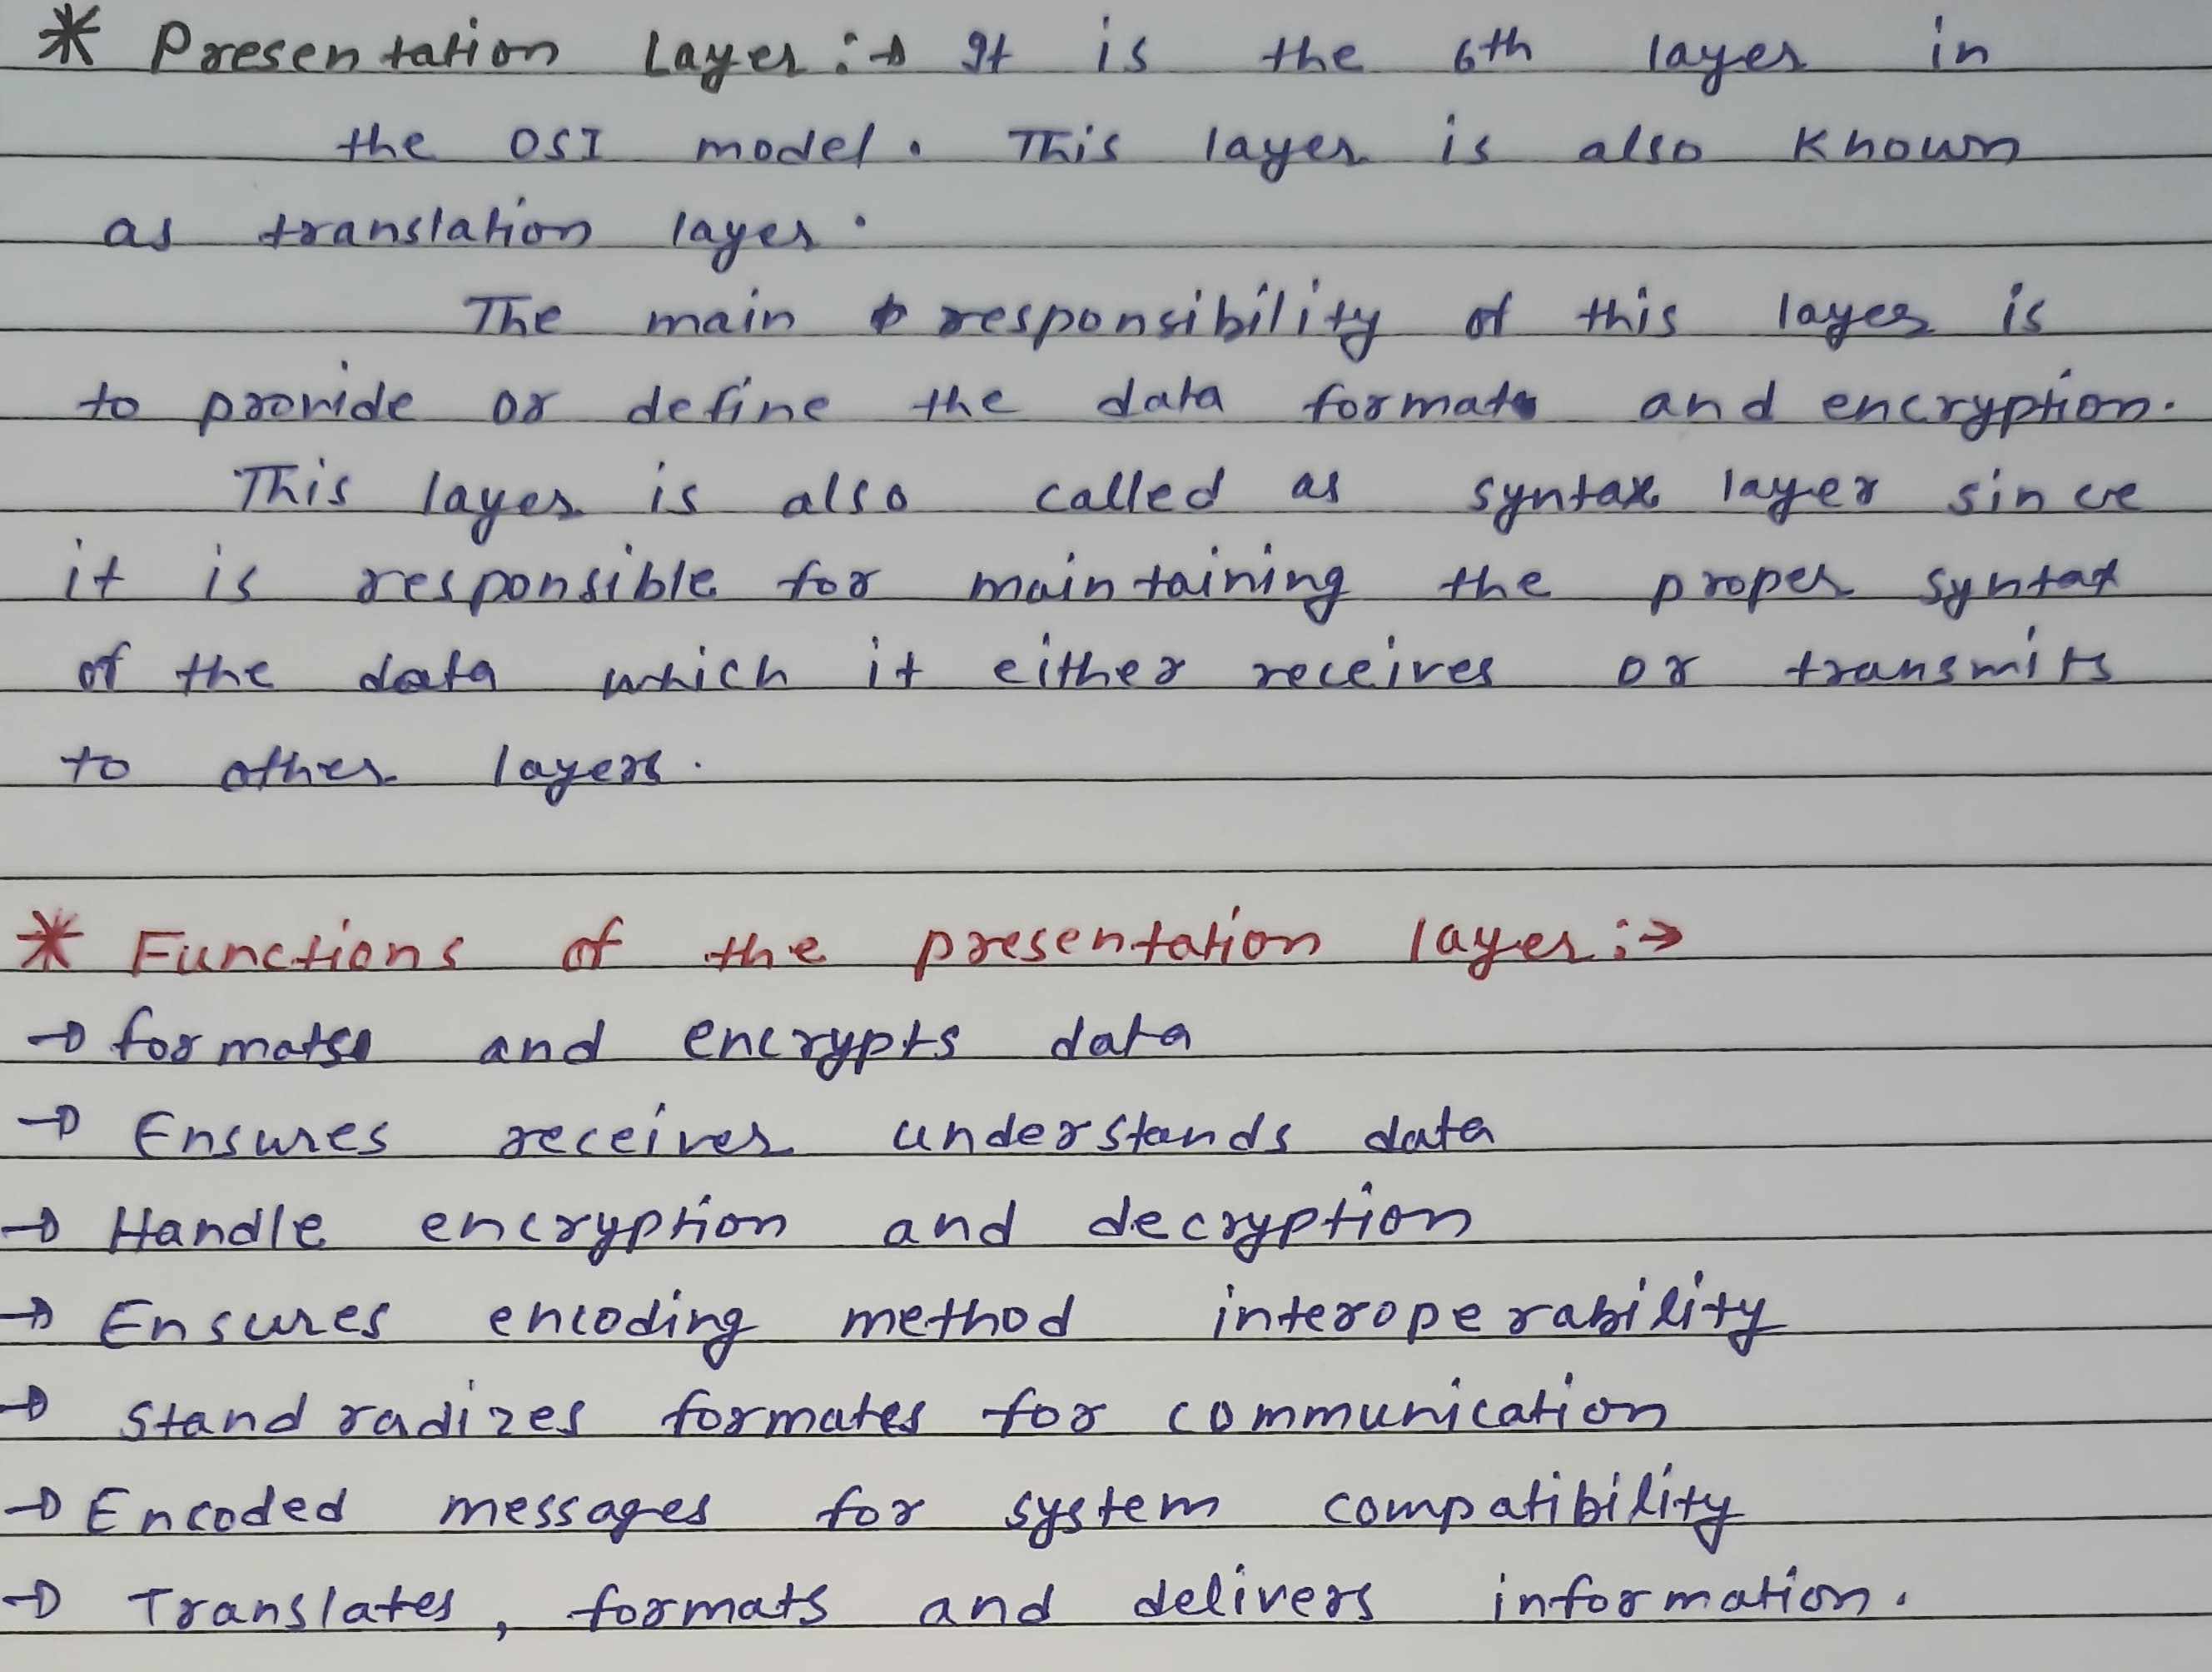 * Presentation Layer :→ It is the 6th layer in
the OSI model. This layer is also known
as translation layer.
The main responsibility of this layer is
to provide or define the data format and encryption.
This layer is also called as syntax layer since
it is responsible for maintaining the proper syntax
of the data which it either receives or transmits
to other layers.
* Functions of the presentation layer :→
→ formats and encrypts data
→ Ensures receiver understands data
→ Handle encryption and decryption
→ Ensures encoding method interoperability
→ Standradizes formates for communication
→ Encoded messages for system compatibility
→ Translates, formats and delivers information.